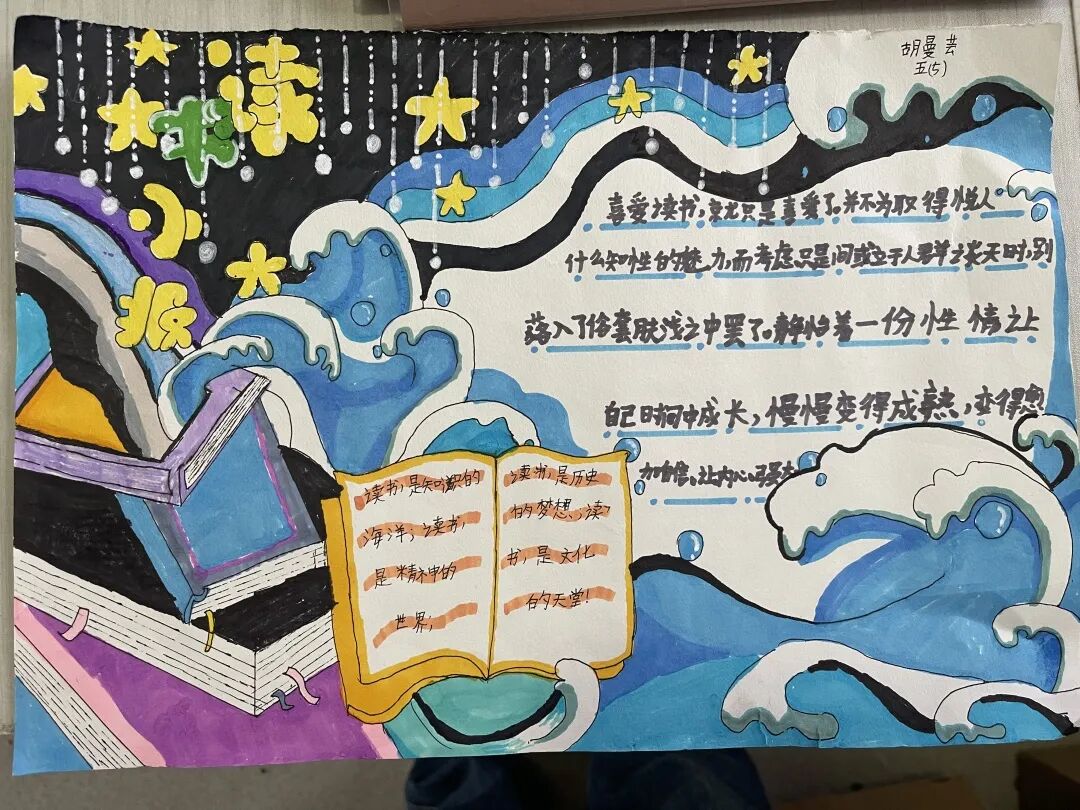 读
书
小
报
胡曼芸
五(5)
喜爱读书,就只是喜爱了。并不为取得悦人
什么知性的魅力,而考虑只是间或立于人群之天时,别
落入了俗套肤浅之中罢了。静怡着一份性情之上
自己时间中成长,慢慢变得成熟,变得更
加自信、让内心
读书,是知识的
海洋;读书,
是精神的
世界;
读书,是历史
的梦想,读
书,是文化
的天堂!